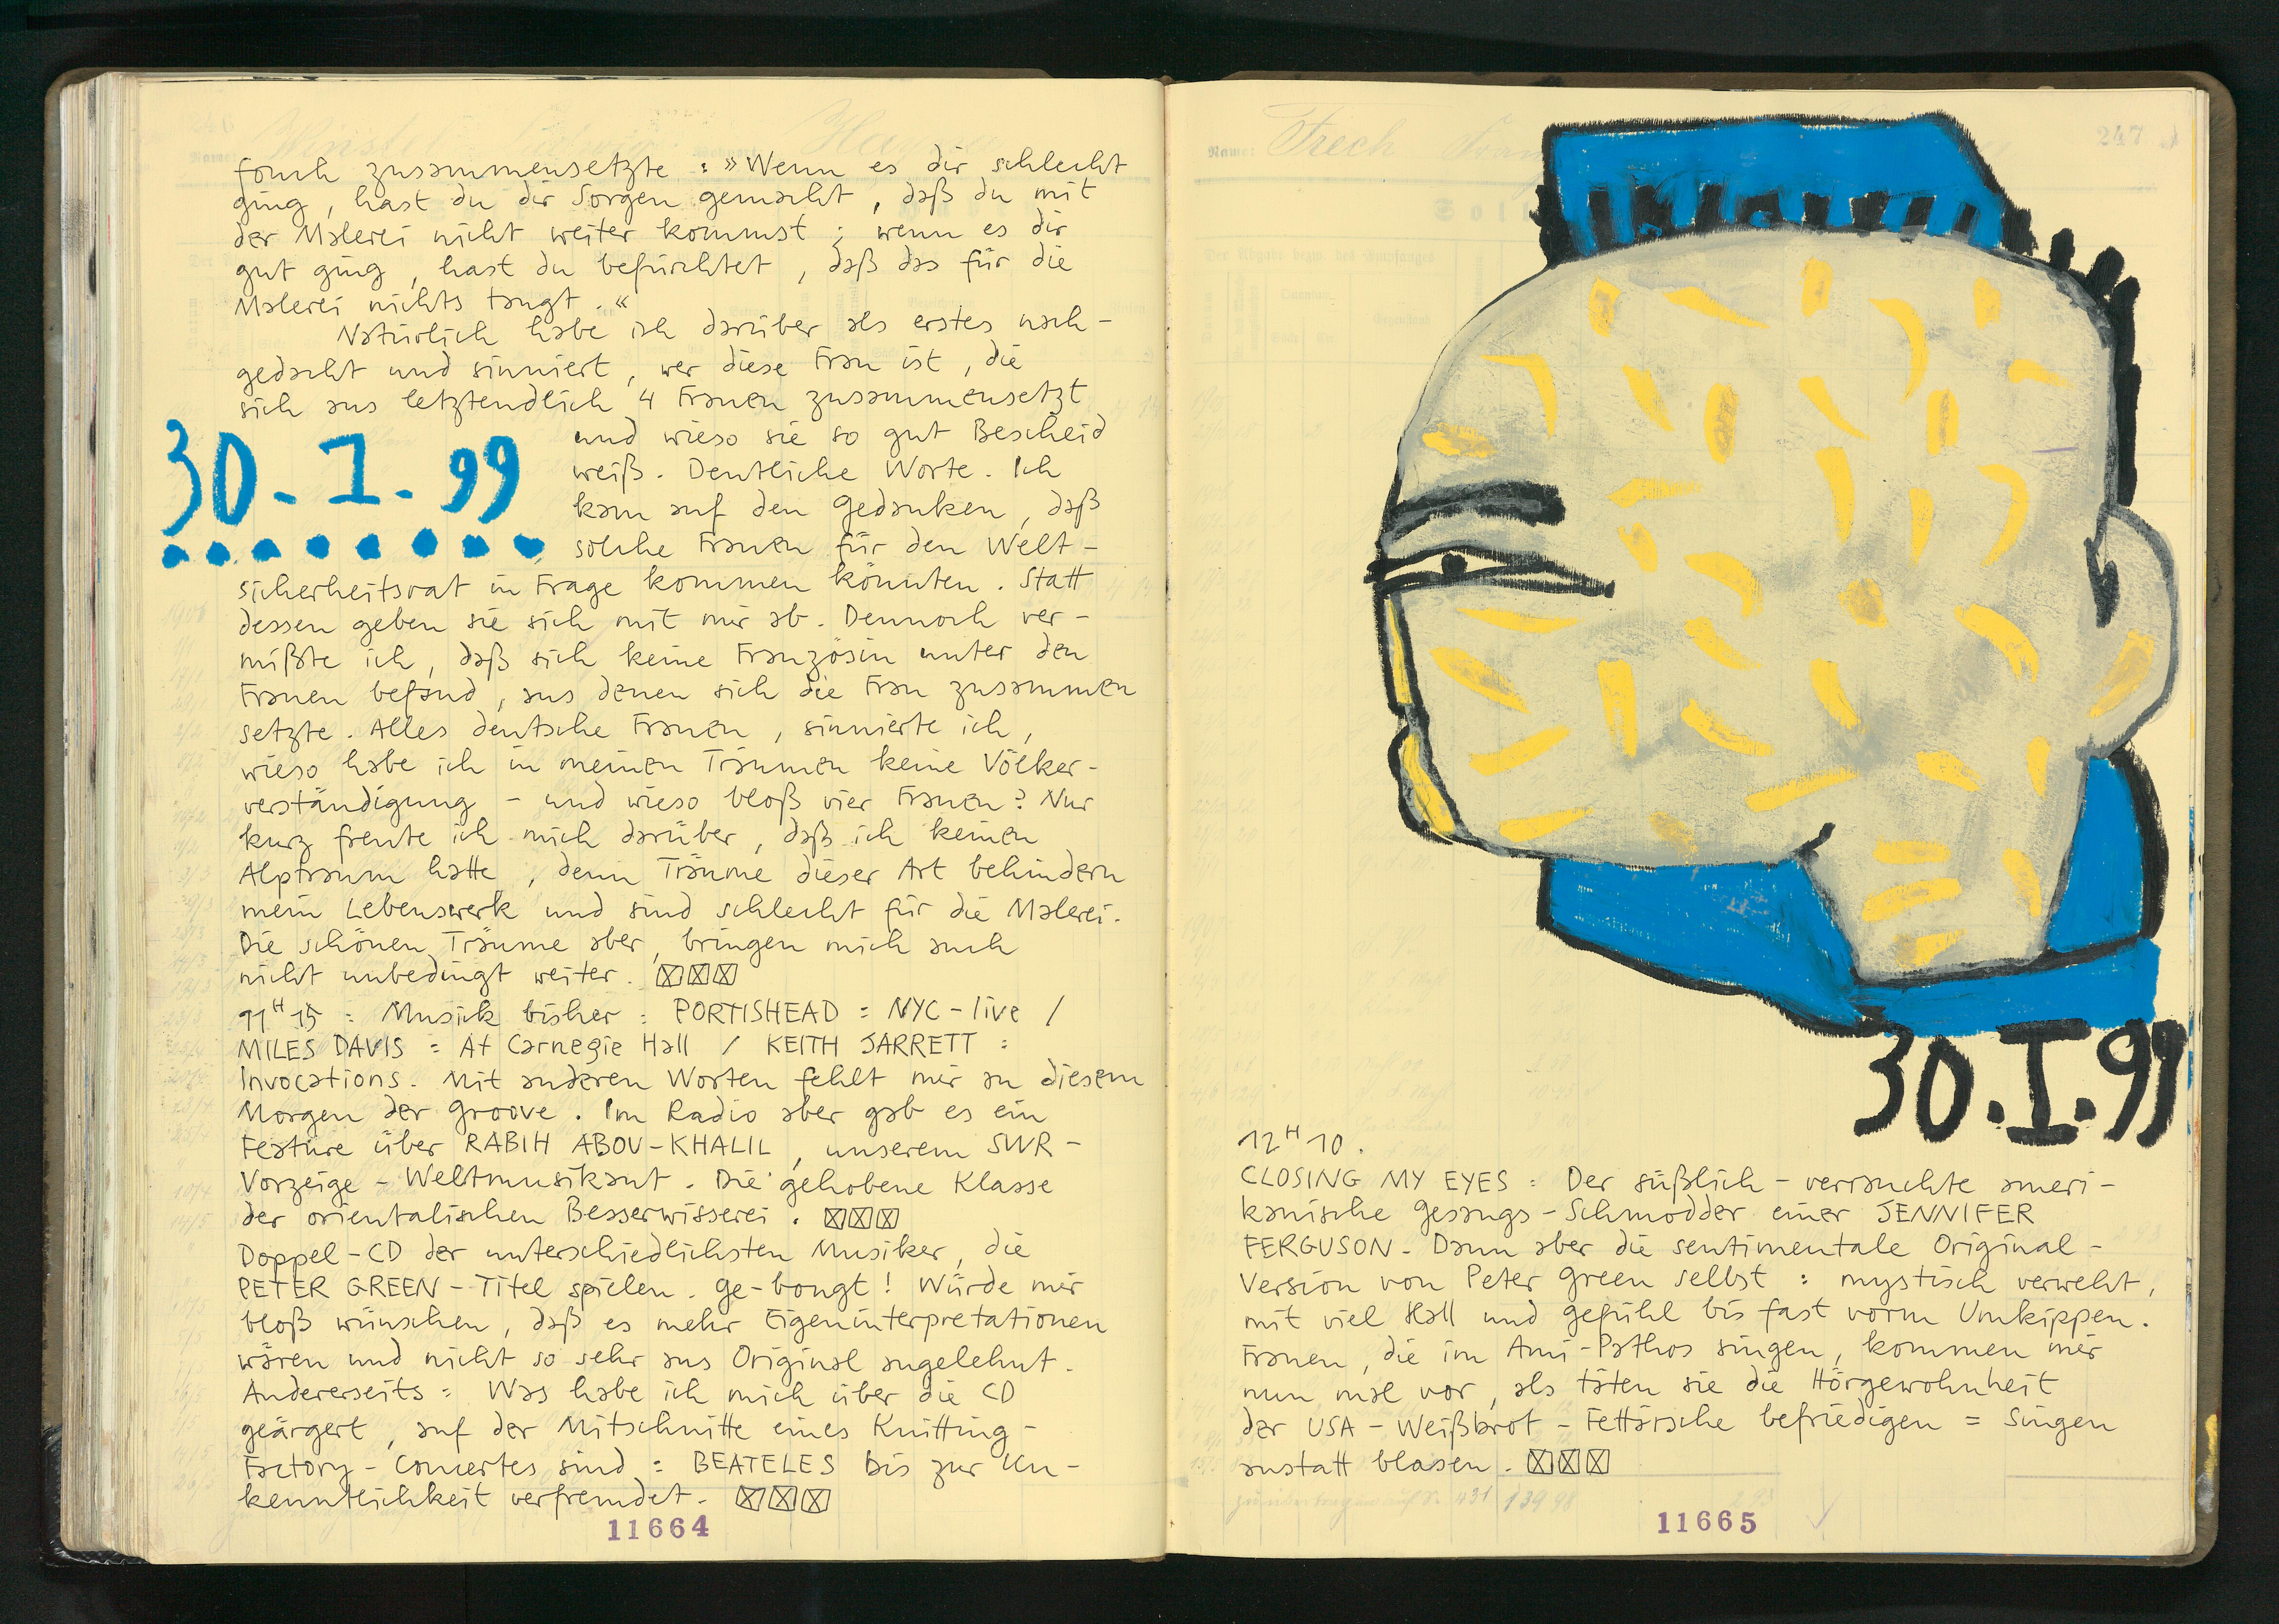 fach zusammensetzte : »Wenn es dir schlecht
ging, hast du dir Sorgen gemacht, daß du mit
der Malerei nicht weiter kommst ; wenn es dir
gut ging, hast du befürchtet, daß das für die
Malerei nichts taugt.«
Natürlich habe ich darüber als erstes nach-
gedacht und sinniert, wer diese Frau ist, die
sich aus letztendlich 4 Frauen zusammensetzt
30. I. 99
und wieso sie so gut Bescheid
weiß. Deutliche Worte. Ich
kam auf den Gedanken, daß
solche Frauen für den Welt-
sicherheitsrat in Frage kommen könnten. Statt
dessen geben sie sich mit mir ab. Dennoch ver-
mißte ich, daß sich keine Französin unter den
Frauen befand, aus denen sich die Frau zusammen
setzte. Alles deutsche Frauen, sinnierte ich,
wieso habe ich in meinen Träumen keine Völker-
verständigung - und wieso bloß vier Frauen? Nur
kurz freute ich mich darüber, daß ich keinen
Alptraum hatte, denn Träume dieser Art behindern
mein Lebenswerk und sind schlecht für die Malerei.
Die schönen Träume aber, bringen mich auch
nicht unbedingt weiter.
11H15 : Musick bisher : PORTISHEAD = NYC-live /
MILES DAVIS = At Carnegie Hall / KEITH JARRETT :
Invocations. Mit anderen Worten fehlt mir an diesem
Morgen der Groove. Im Radio aber gab es ein
Feature über RABIH ABOU-KHALIL, unserem SWR-
Vorzeige-Weltmusikant. Die gehobene Klasse
der orientalischen Besserwisserei.
Doppel-CD der unterschiedlichsten Musiker, die
PETER GREEN-Titel spielen. Ge-bongt! Würde mir
bloß wünschen, daß es mehr Eigeninterpretationen
wären und nicht so sehr ans Original angelehnt.
Andererseits = Was habe ich mich über die CD
geärgert, auf der Mitschnitte eines Knitting-
Factory-Concertes sind = BEATELES bis zur Un-
kenntlichkeit verfremdet.
11664
Name: Frech
247
Soll
30.I.99
12H10.
CLOSING MY EYES : Der süßlich-verrauchte ameri-
kanische Gesangs-Schmodder einer JENNIFER
FERGUSON. Dann aber die sentimentale Original-
Version von Peter Green selbst : mystisch verweht,
mit viel Hall und Gefühl bis fast vorm Umkippen.
Frauen, die im Ami-Pathos singen, kommen mir
nun mal vor, als täten sie die Hörgewohnheit
der USA-Weißbrot-Fettärsche befriedigen = Singen
anstatt blasen.
11665